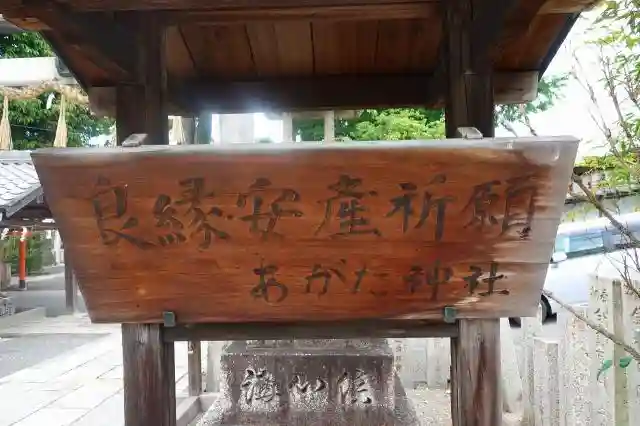 良縁安産祈願
あがた神社